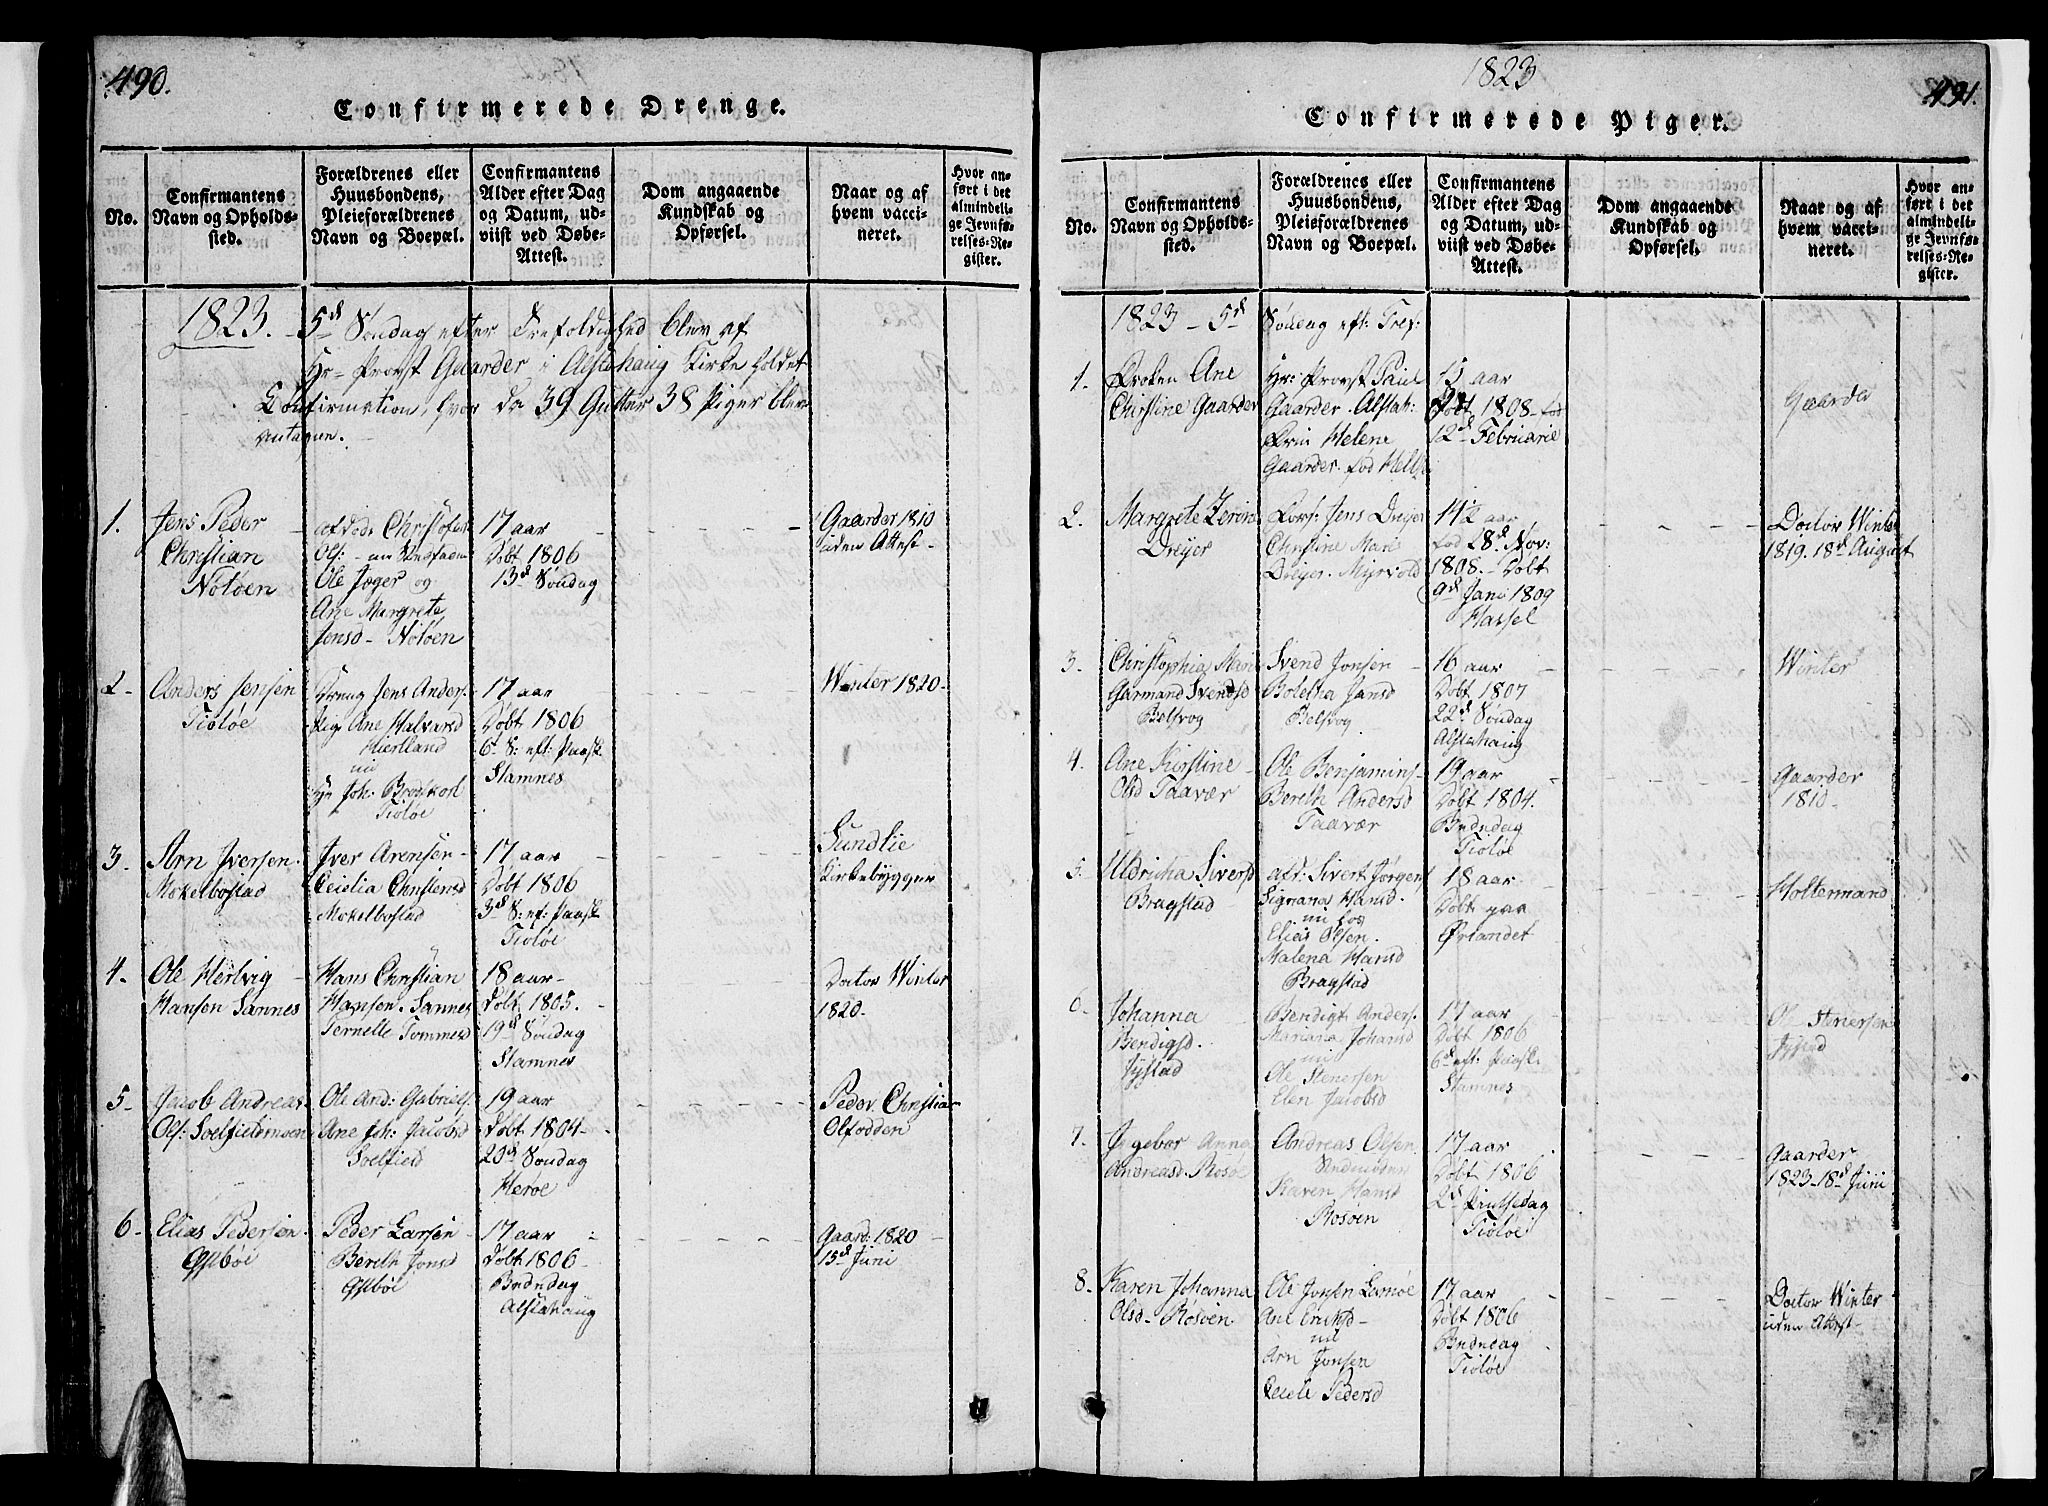 490.
Confirmerede Drenge.
No.
Confirmantens
Navn og Opholds-
sted.
Forældrenes eller
Huusbondens,
Pleieforældrenes
Navn og Boepæl.
Confirmantens
Alder efter Dag
og Datum, ud-
viist ved Døbe-
Attest.
Dom angaaende
Kundskab og
Opførsel.
Naar og af
hvem vacci-
neret.
Hvor an-
ført i det
almindeli-
ge Jevnfø-
relses-Re-
gister.
1823. - 5d Søndag efter Trefoldighed blev af
Hr- Provst Gaarder i Alstahaug Kirke holdet
Confirmation, hvor da 39 Gutter 38 Piger blev
antagen.
1.
Jens Peder
Christian
Notøen
afdøde Christofer
Ols:
Ole Jæger og
Ane Margrete
Jensd- Notøen
17 aar
Døbt 1806
13d Søndag
Gaarder 1810
uden Attest-
2-
Anders Jensen
Tiøtøe
Dreng Jens Anders.
Pig. Ane Halvarsd
Hiertland
nu
Joh: Brodtkorb
Tiøtøe
17 aar
Døbt 1806
6t S: eft: Paask
Stamnes
Winter 1820-
3.
Arn Iversen.
Mekelbostad
Iver Arensen-
Ceielia Christensd
Mekelbostad
17 aar
Døbt 1806
3d S: ef: Paask
Tiøtøe
Sundlie
Kirkebygger
4.
Ole Hertvig
Hansen Sannes
Hans Christian
Hansen. Sannes
Pernelle Tommesd
18 aar-
Døbt 1805.
19d Søndag
Stamnes
Doctor Winter
1820-
5-
Jacob Andreas
Ols: Solfieldmoen
Ole And: Gabriels.
Ane Joh: Jacobsd
Soelfield
19 aar
Døbt 1804-
20d Søndag
Herøe
Peder Christia
Olfodden
6-
Elias Pedersen
Qvalbøe
Peder Larsen
Bereth Jonsd
17 aar
Døbt 1806-
Bndndag
Alstahaug
Gaard: 1820
15d Juni
1823
491.
Confirmerede Piger.
No.
Confirmantens
Navn og Opholds-
sted.
Forældrenes eller
Huusbondens,
Pleieforældrenes
Navn og Boepæl.
Confirmantens
Alder efter Dag
og Datum, ud-
viist ved Døbe-
Attest.
Dom angaaende
Kundskab og
Opførsel.
Naar og af
hvem vacci-
neret.
Hvor an-
ført i det
almindeli-
ge Jevnfø-
relses-Re-
gister.
1823 - 5d Søndag eft: Tref:
1.
Frøken Ane
Christine Gaarder
Hr: Provst Paul
Gaarder. Alstah:
Fru Helene
Gaarder. fød
15 aar
Døbt 1808- fød
12d Februarie
Gaarder
2.
Margrete
Dreyer
Jens Dreyer
Christine Mari
Dreyer. Myrvold
14½ aar
fød 28d Nov:
1808.- Døbt
9d Jani 1809
Hassel
Doctor Winter
1819. 18d August
3.
Christophia Mari
Garmand Svendsd
Belsvog
Svend Jonsen
Boletha Jansd
Belsvog
16 aar
Døbt 1807
22d Søndag
Alstahaug
Winter
4.
Ane Kirstine
Olsd Taavær
Ole Benjamins
Bereth Andersd
Taavær
19 aar
Døbt 1804.
Bndndag
Tiøtøe
Gaarder
1810-
5.
Uldricha Siversd
Bragstad
afd: Sivert Jørgens
Signana Hansd.
nu hos
Elias Olsen.
Malena Hansd
Bragstad
18 aar
Døbt paa
Ørlandet
Holtermand
6.
Johanna
Bendigsd.
Bendigt Anders.
Mariana Johansd
nu
Ole Stenersen
Elen Jacobsd
17 aar
Døbt 1806
6d eft: Paask
Stamnes
Ol Stenersen
7.
Ingebor Anna
Andreasd. Rosøe
Andreas Olsen
Karen Hansd
Rosøen
17 aar
Døbt 1806
2d Pintsedag
Tiøtøe
Gaarder
1823-18d Juni
8.
Karen Johanna
Olsd- Rosøen.
Ole Jonsen
Ane Ericksd-
nu
Arn Jonsen
Ceiele Pedersd
17 aar
Døbt 1806
Bndndag
Tiøtøe
Doctor Winter
uden Attest-